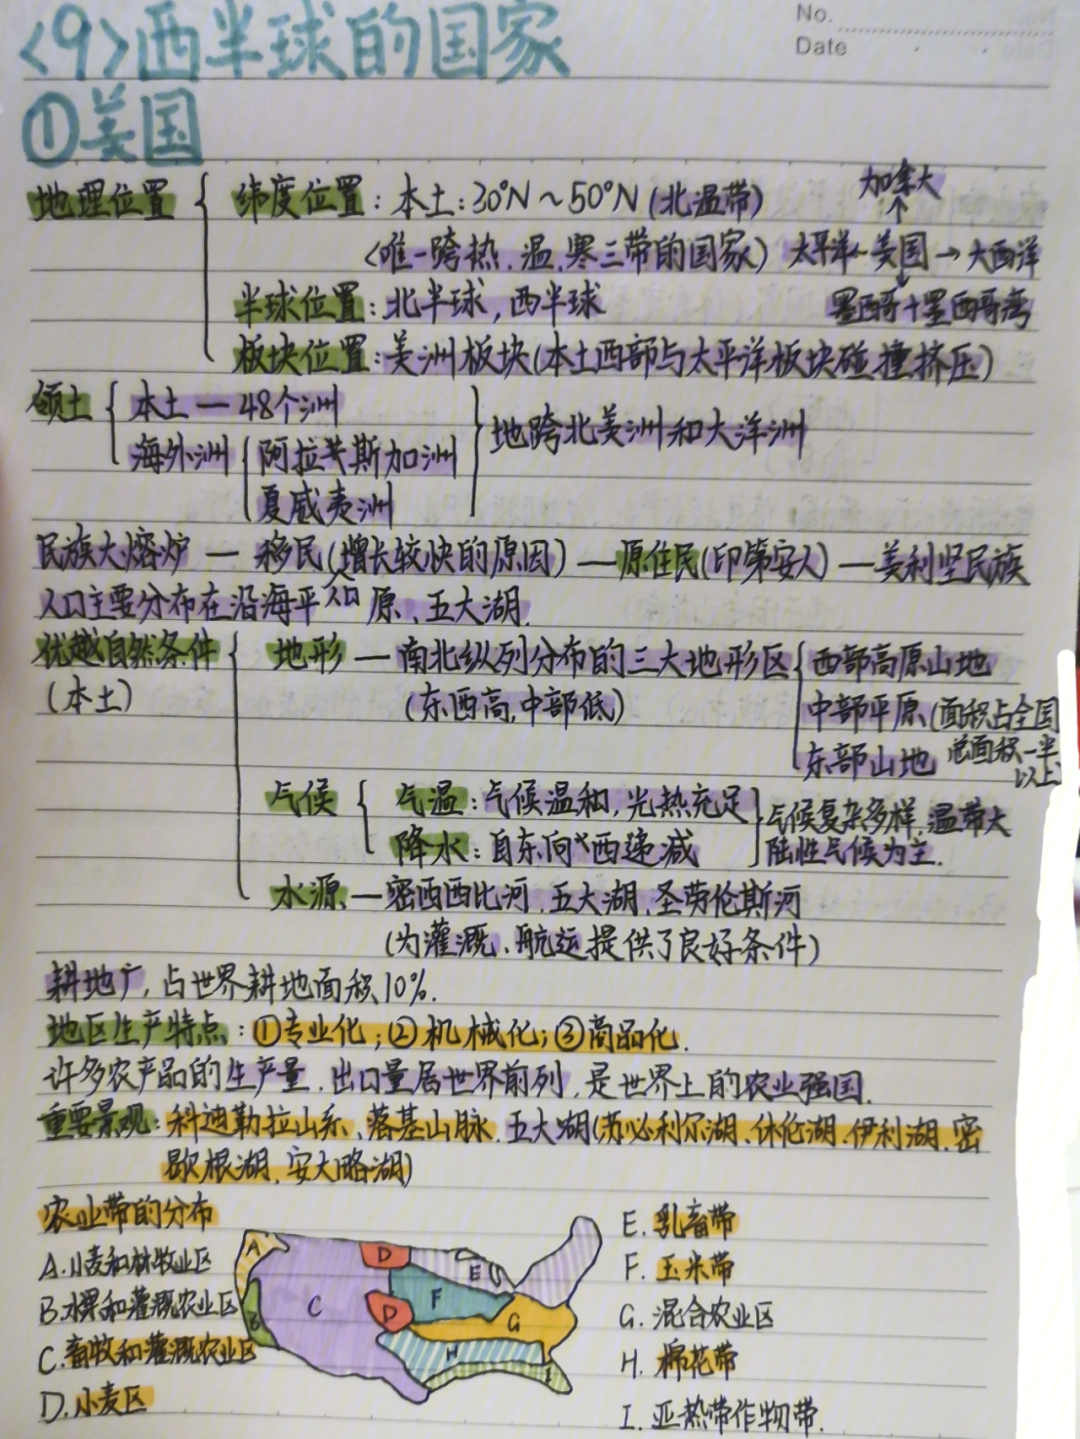 No.
Date
<9>西半球的国家
①美国
地理位置
纬度位置：本土：30°N～50°N(北温带)
(唯一跨热、温、寒三带的国家)
加拿大
↑
太平洋←美国→大西洋
↓
墨西哥+墨西哥湾
半球位置：北半球，西半球
板块位置：美洲板块(本土西部与太平洋板块碰撞挤压)
领土
本土—48个洲
海外洲
阿拉斯加洲
夏威夷洲
地跨北美洲和大洋洲
民族大熔炉—移民(增长较快的原因)—原住民(印第安人)—美利坚民族
人口
人口主要分布在沿海平原、五大湖.
优越自然条件
(本土)
地形—南北纵列分布的三大地形区
(东西高,中部低)
西部高原山地
中部平原(面积占全国
总面积一半
以上)
东部山地
气候
气温：气候温和,光热充足
降水：自东向西递减
气候复杂多样,温带大
陆性气候为主.
水源—密西西比河、五大湖、圣劳伦斯河
(为灌溉、航运提供了良好条件)
耕地广,占世界耕地面积10%.
地区生产特点：①专业化；②机械化；③商品化.
许多农产品的生产量、出口量居世界前列,是世界上的农业强国.
重要景观：科迪勒拉山系、落基山脉、五大湖(苏必利尔湖、休伦湖、伊利湖、密
歇根湖、安大略湖)
农业带的分布
A.小麦和林牧业区
B.水果和灌溉农业区
C.畜牧和灌溉农业区
D.小麦区
A
B
C
D
D
E
F
G
H
I
E.乳畜带
F.玉米带
G.混合农业区
H.棉花带
I.亚热带作物带.